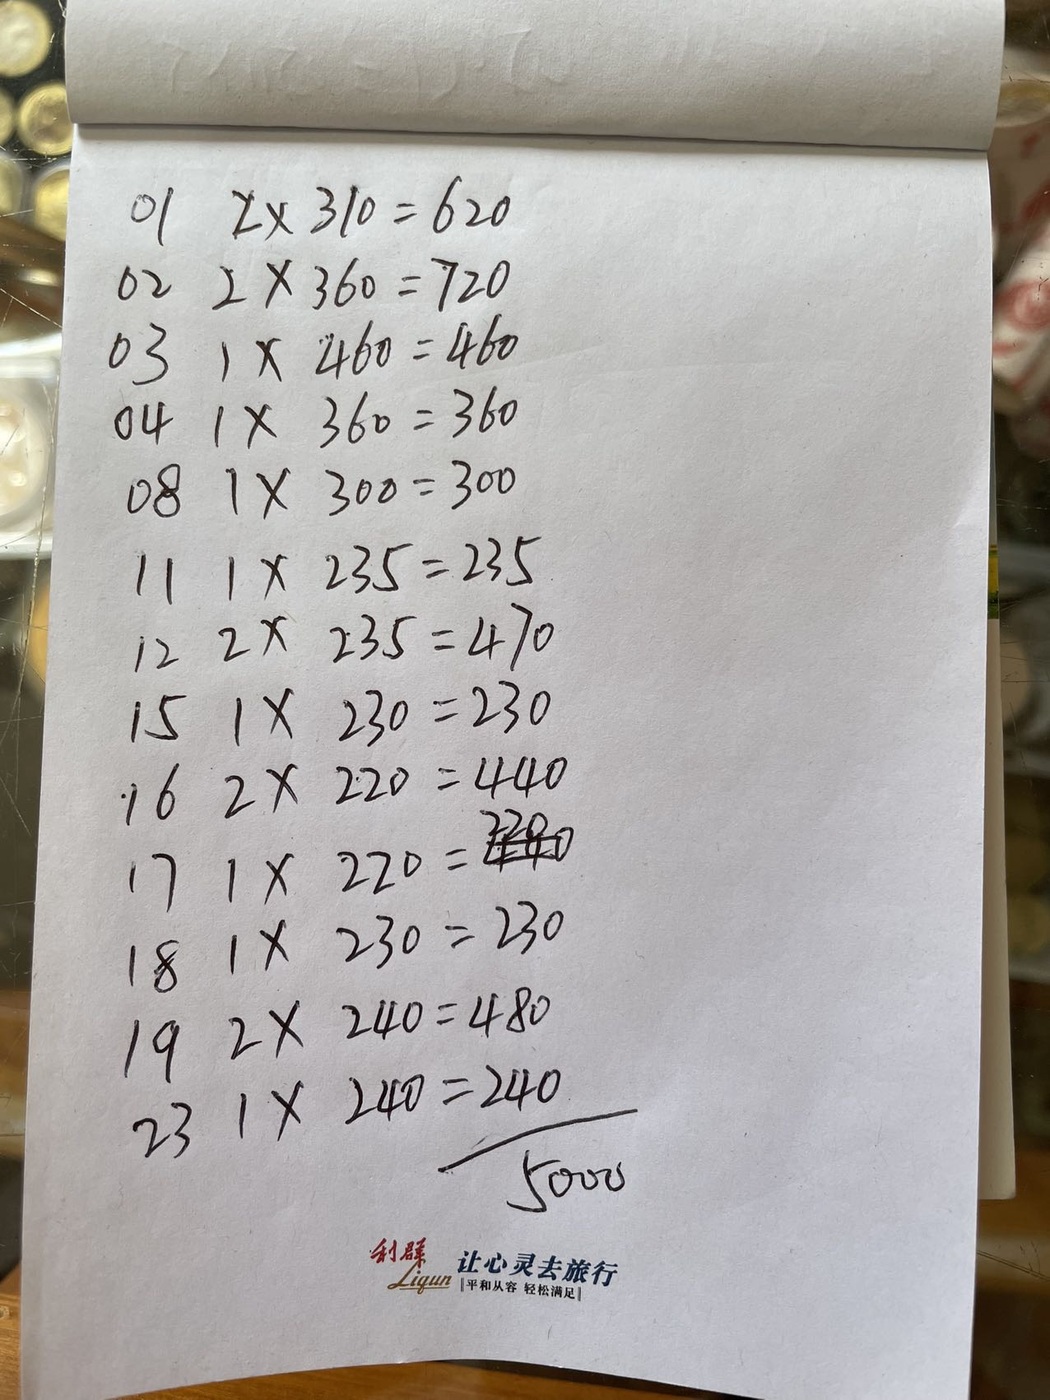 01 2×310=620
02 2×360=720
03 1×460=460
04 1×360=360
08 1×300=300
11 1×235=235
12 2×235=470
15 1×230=230
16 2×220=440
17 1×220=220
18 1×230=230
19 2×240=480
23 1×240=240
5000
利群 Liqun 让心灵去旅行
平和从容 轻松满足